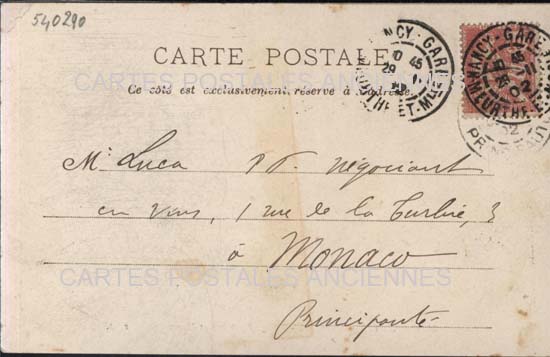 540290
CARTE POSTALE
Ce côté est exclusivement réservé à l'adresse.
NANCY-GARE
MEURTHE-ET-MLLE
NANCY-GARE
MEURTHE-ET-M
CARTES POSTALES ANCIENNES
Mr Luca négociant
en vins, 1 rue de la Turbie, 3
à Monaco
CARTES POSTALES ANCIENNES
Principauté